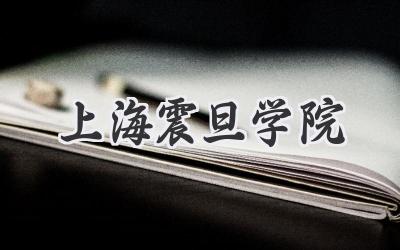 上海震旦学院